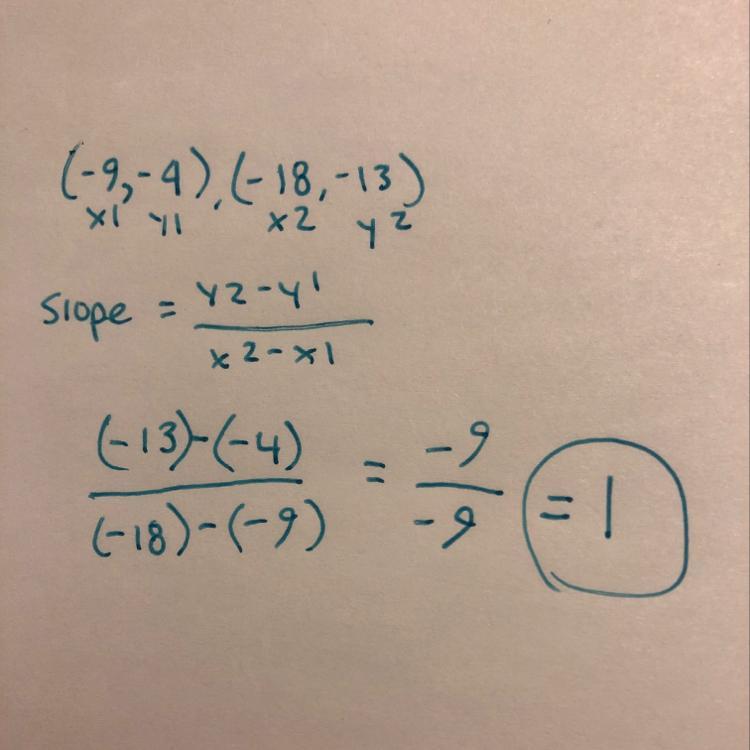 (-9,-4), (-18,-13)
x1 y1 x2 y2
Slope = y2-y1
x2-x1
(-13)-(-4) = -9 = 1
(-18)-(-9) -9